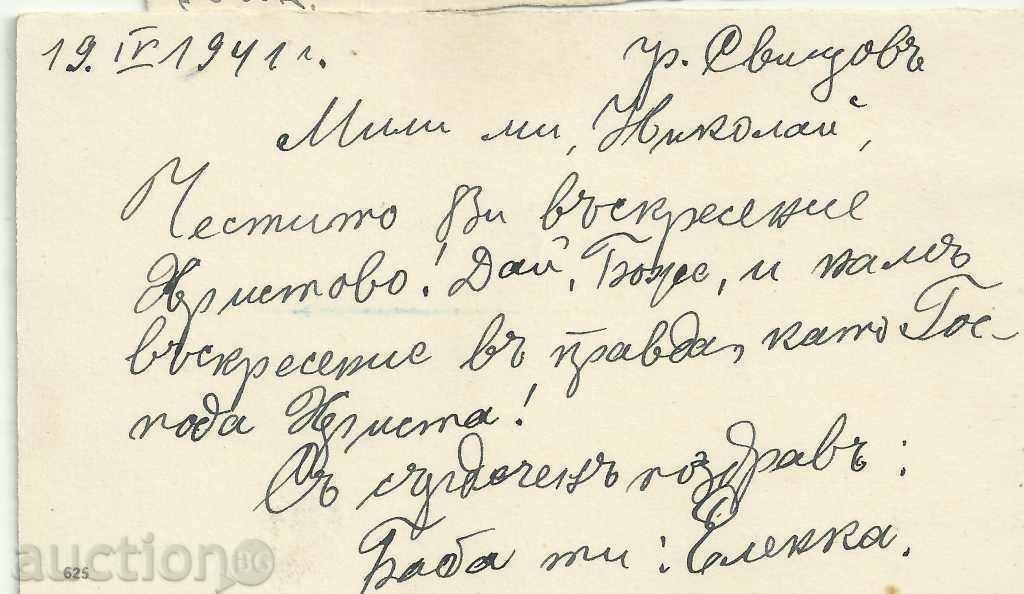 19. IV 1941 г. гр. Свищовъ
Мили ми, Николай,
Честито Ви въскресение
Христово! Дай, Боже, и намъ
въскресение въ правда, като Гос-
пода Христа!
Съ сърдеченъ поздравъ:
Баба ти: Еленка.
625
auction BG